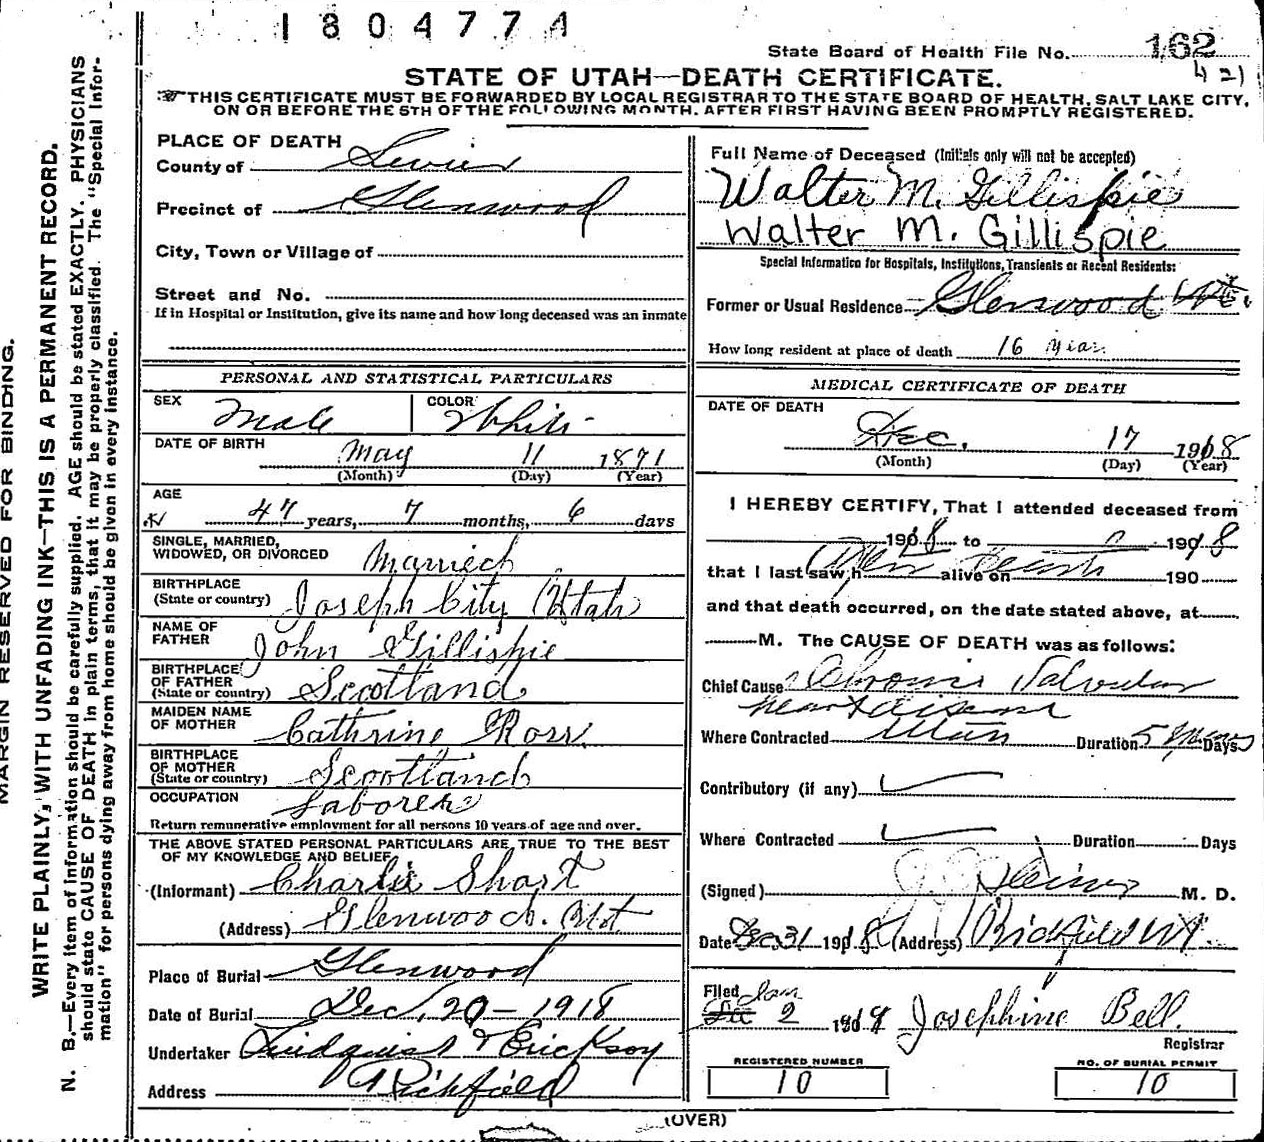 1804774
State Board of Health File No. 162
421
STATE OF UTAH—DEATH CERTIFICATE.
THIS CERTIFICATE MUST BE FORWARDED BY LOCAL REGISTRAR TO THE STATE BOARD OF HEALTH, SALT LAKE CITY,
ON OR BEFORE THE 5TH OF THE FOLLOWING MONTH, AFTER FIRST HAVING BEEN PROMPTLY REGISTERED.
MARGIN RESERVED FOR BINDING.
WRITE PLAINLY, WITH UNFADING INK—THIS IS A PERMANENT RECORD.
N. B.—Every item of information should be carefully supplied. AGE should be stated EXACTLY. PHYSICIANS
should state CAUSE OF DEATH in plain terms, that it may be properly classified. The "Special Infor-
mation" for persons dying away from home should be given in every instance.
PLACE OF DEATH
County of Sevier
Precinct of Glenwood
City, Town or Village of
Street and No.
If in Hospital or Institution, give its name and how long deceased was an inmate
PERSONAL AND STATISTICAL PARTICULARS
SEX Male COLOR White
DATE OF BIRTH May 11 1871
(Month) (Day) (Year)
AGE
47 years, 7 months, 6 days
SINGLE, MARRIED,
WIDOWED, OR DIVORCED Married
BIRTHPLACE
(State or country) Joseph City Utah
NAME OF
FATHER John Gillispie
BIRTHPLACE
OF FATHER
(State or country) Scotland
MAIDEN NAME
OF MOTHER Cathrine Ross
BIRTHPLACE
OF MOTHER
(State or country) Scotland
OCCUPATION Laborer
Return remunerative employment for all persons 10 years of age and over.
THE ABOVE STATED PERSONAL PARTICULARS ARE TRUE TO THE BEST
OF MY KNOWLEDGE AND BELIEF
(Informant) Charlie Short
(Address) Glenwood. Ut
Place of Burial Glenwood
Date of Burial Dec, 20 - 1918
Undertaker Lindquist & Erickson
Address Richfield
Full Name of Deceased (Initials only will not be accepted)
Walter M. Gillispie
Walter M. Gillispie
Special Information for Hospitals, Institutions, Transients or Recent Residents:
Former or Usual Residence Glenwood Ut.
How long resident at place of death 16 year
MEDICAL CERTIFICATE OF DEATH
DATE OF DEATH
Dec. 17 1918
(Month) (Day) (Year)
I HEREBY CERTIFY, That I attended deceased from
1908 to 1918
that I last saw h alive on After Death 190
and that death occurred, on the date stated above, at
M. The CAUSE OF DEATH was as follows:
Chief Cause Chronic Valvular
heart disease
Where Contracted Utah Duration 5 years Days
Contributory (if any)
Where Contracted Duration Days
(Signed) M. D.
Date Dec 31 1918 (Address) Richfield Ut.
Filed Jan
Dec 2 1919 Josephine Bell.
Registrar
REGISTERED NUMBER
10
NO. OF BURIAL PERMIT
10
(OVER)